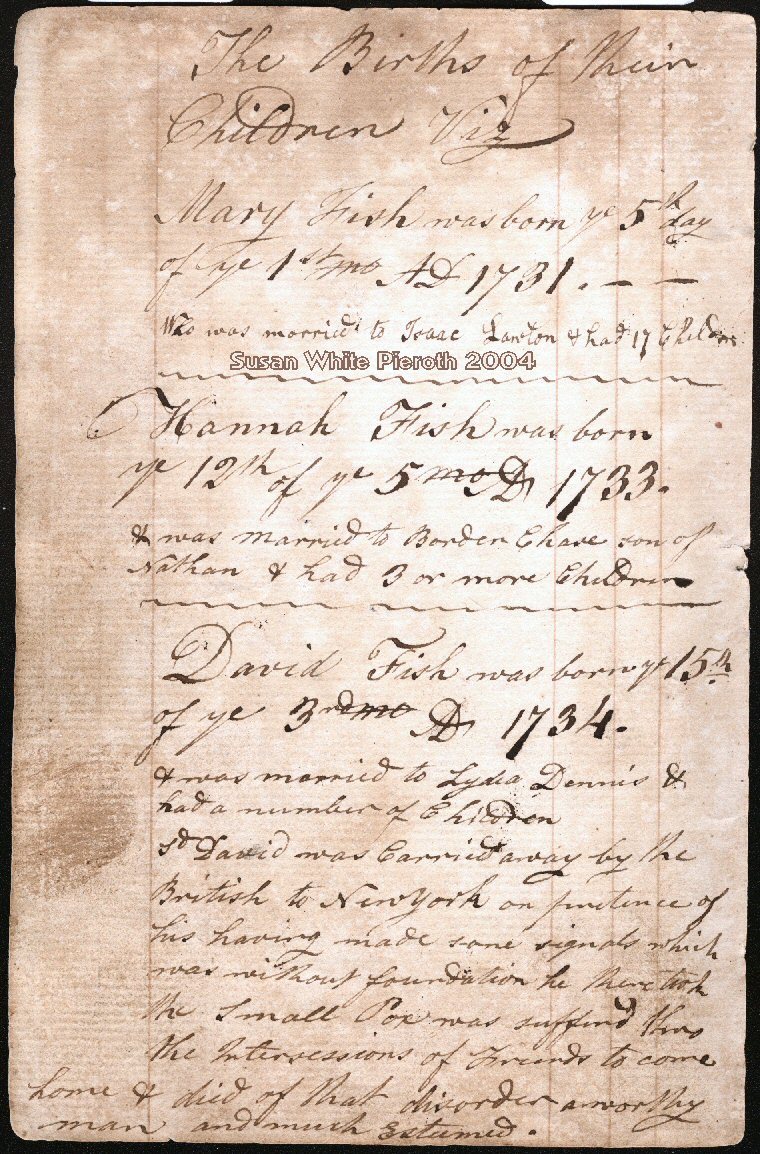 The Births of their
Children Viz
Mary Fish was born ye 5th day
of ye 1st mo AD 1731. – –
Who was married to Isaac Lawton & had 17 Childrn
Susan White Pieroth 2004
Hannah Fish was born
ye 12th of ye 5 mo AD 1733.
& was married to Borden Chase son of
Nathan & had 3 or more Children
David Fish was born ye 15th
of ye 3rd mo AD 1734.
& was married to Lydia Dennis &
had a number of Children
sd David was Carried away by the
British to New York on pretence of
his having made some signals which
was without foundation he there took
the Small Pox was sufferd thro
the Intersessions of Friends to come
home & died of that disorder a worthy
man and much Estumed.